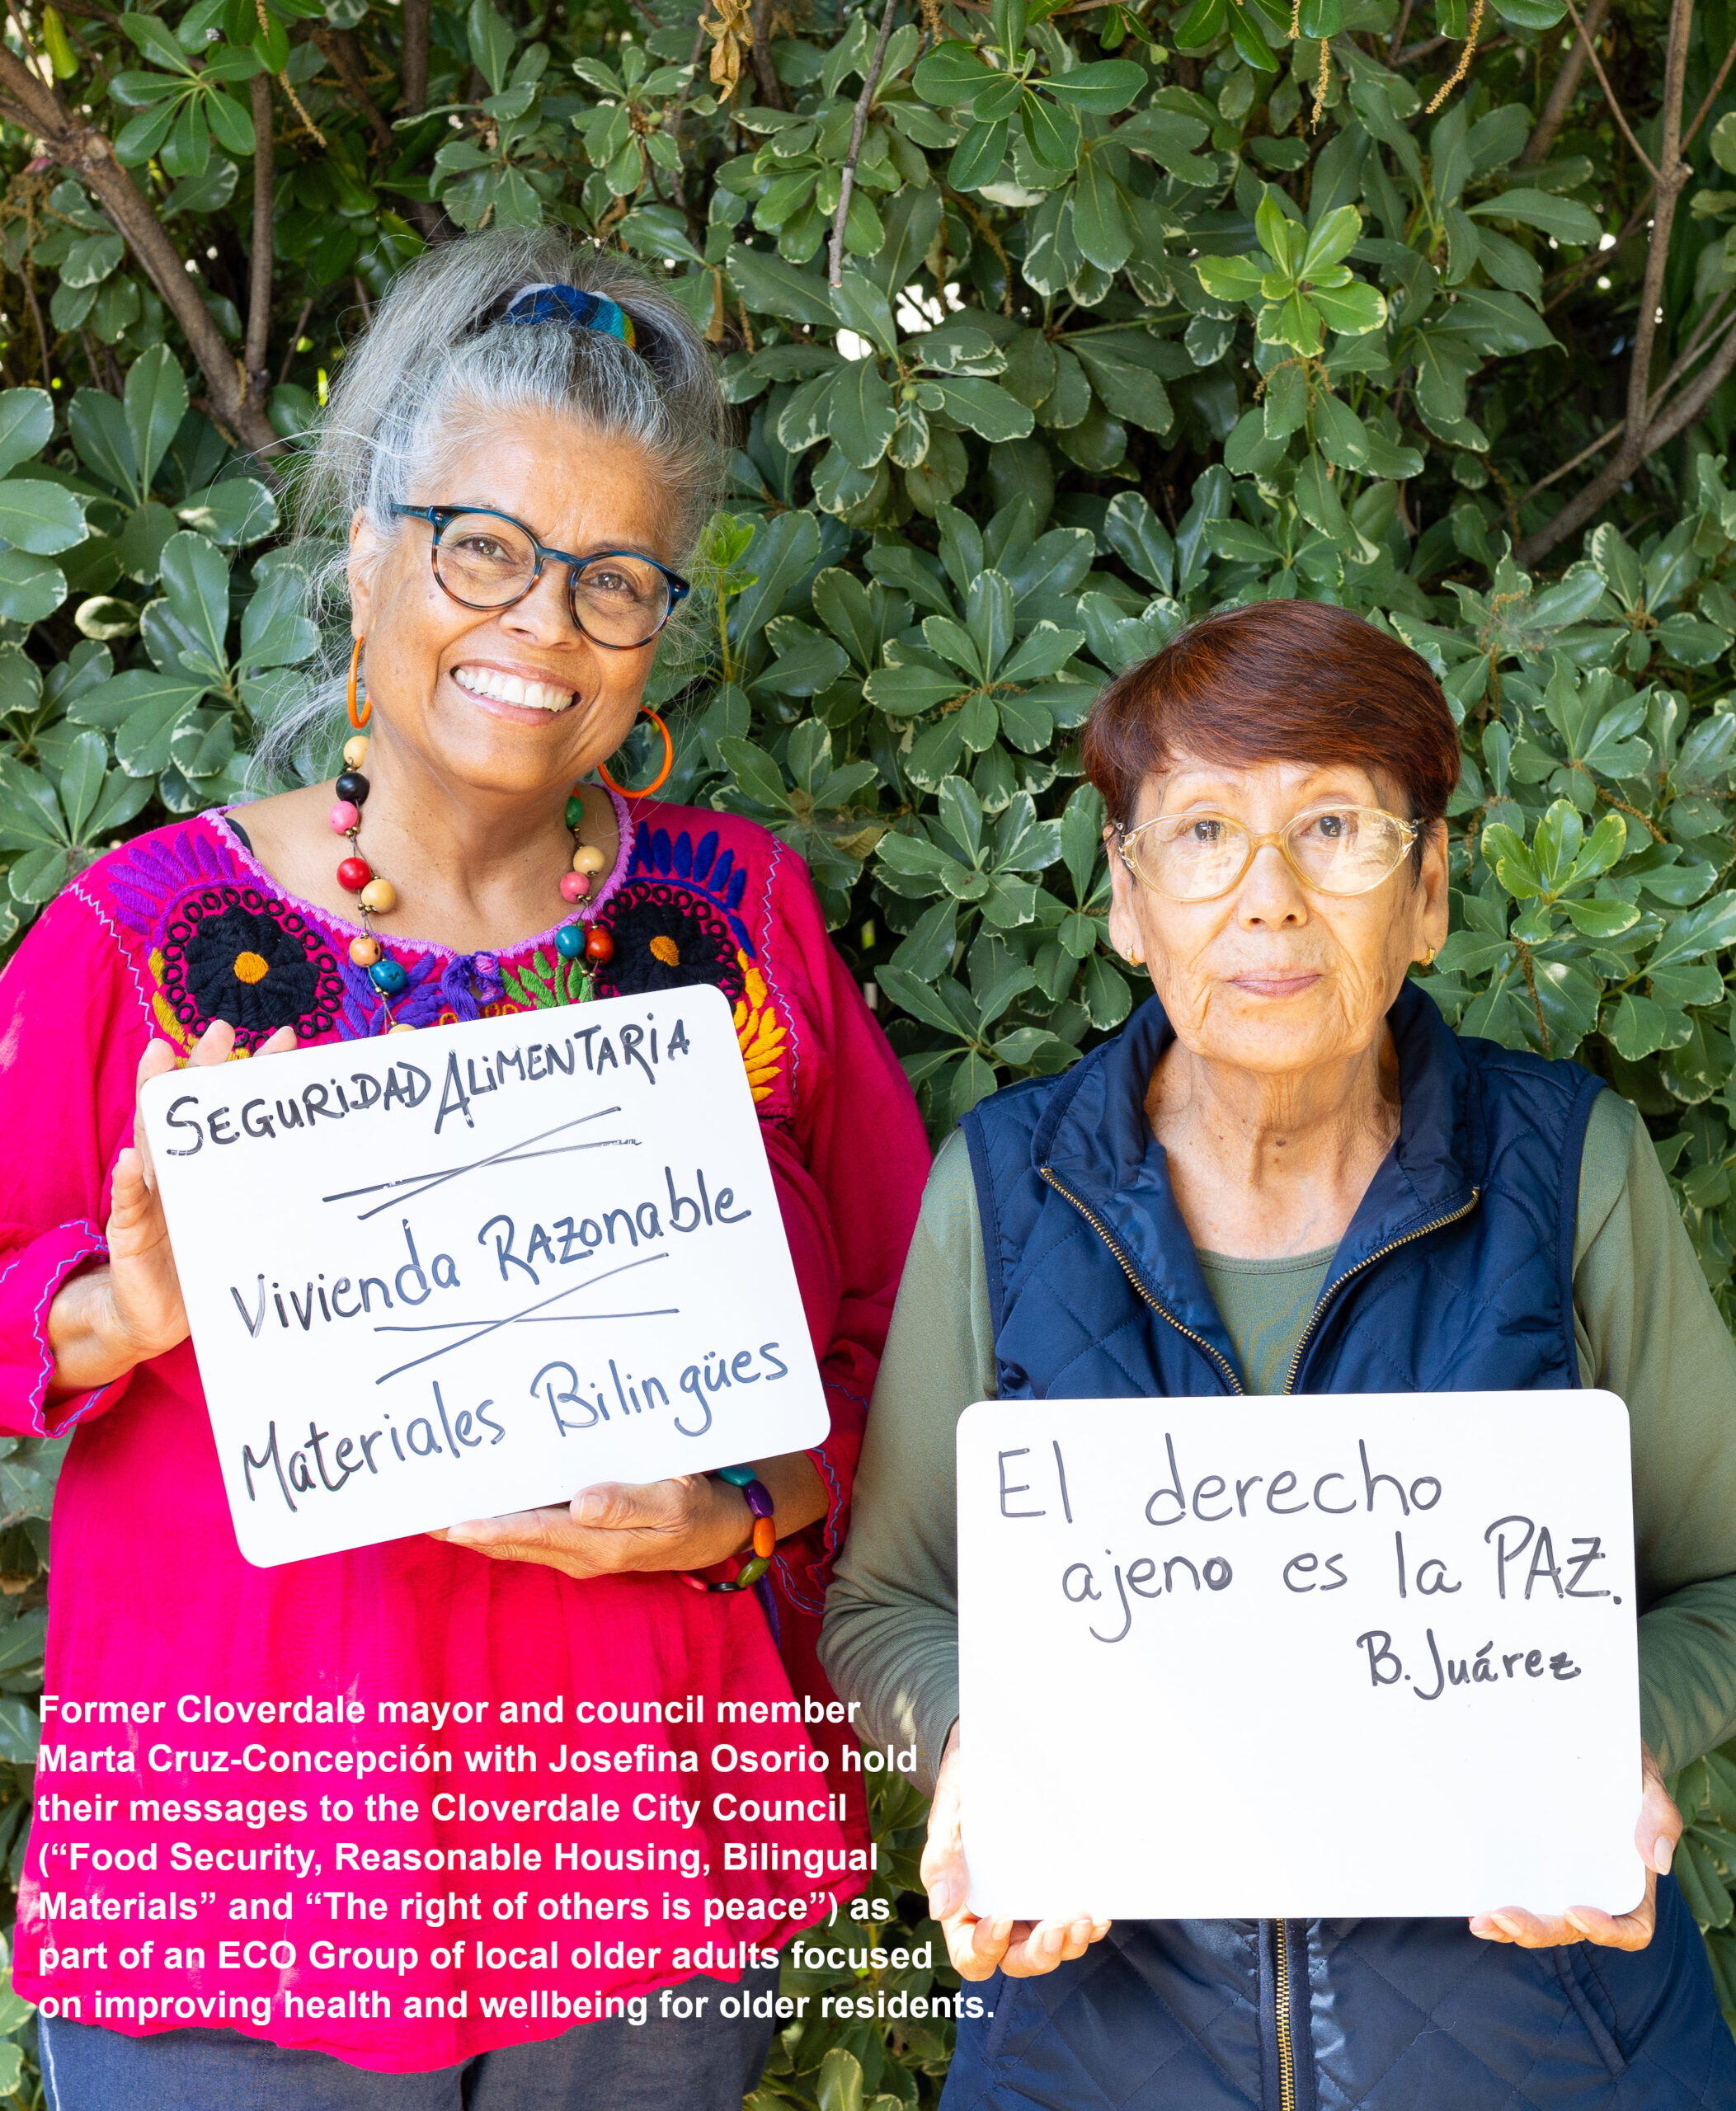 SEGURIDAD ALIMENTARIA
Vivienda RAZonable
Materiales Bilingües
El derecho
ajeno es la PAZ.
B. Juárez
Former Cloverdale mayor and council member
Marta Cruz-Concepción with Josefina Osorio hold
their messages to the Cloverdale City Council
(“Food Security, Reasonable Housing, Bilingual
Materials” and “The right of others is peace”) as
part of an ECO Group of local older adults focused
on improving health and wellbeing for older residents.